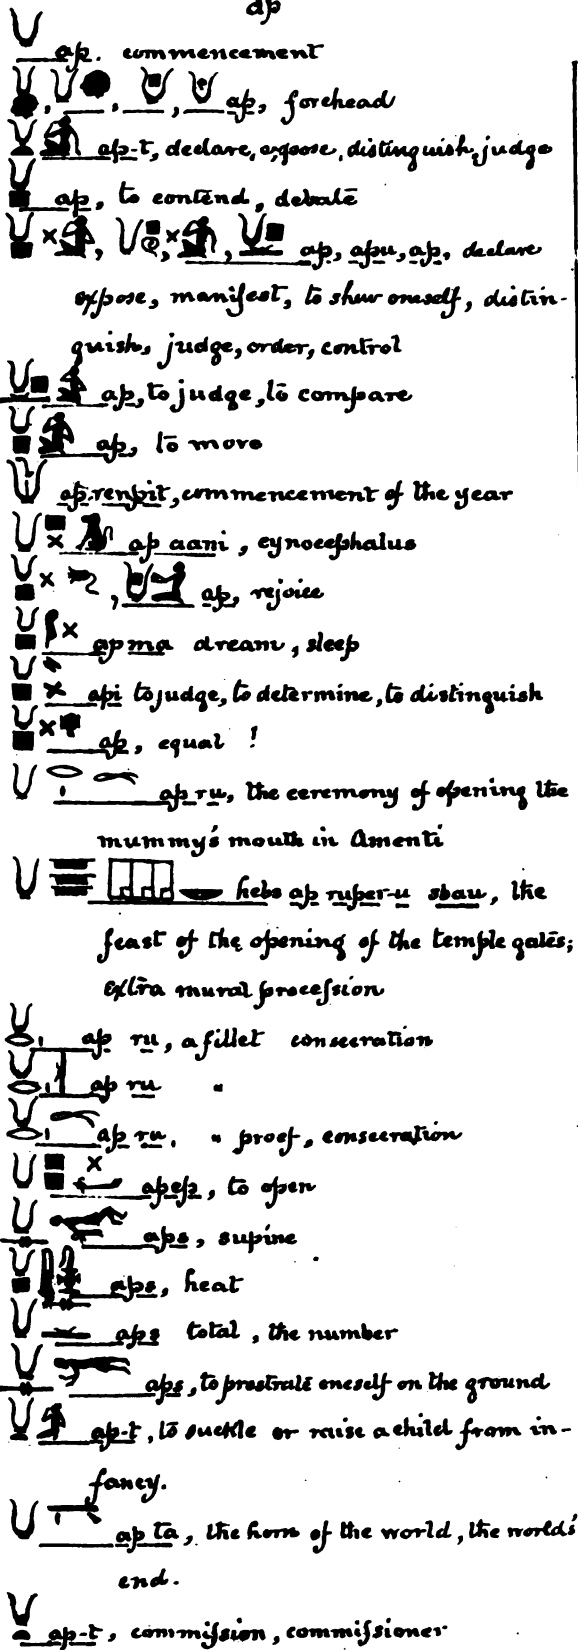 ap
ap. commencement
ap, forehead
ap-t, declare, expose, distinguish, judge
ap, to contend, debate
ap, apu, ap, declare
expose, manifest, to shew oneself, distin-
guish, judge, order, control
ap, to judge, to compare
ap, to move
ap.renpit, commencement of the year
ap aani, cynocephalus
ap, rejoice
apma dream, sleep
api to judge, to determine, to distinguish
ap, equal !
ap ru, the ceremony of opening the
mummy's mouth in Amenti
hebs ap ruper-u sbau, the
feast of the opening of the temple gates;
extra mural procession
ap ru, a fillet consecration
ap ru "
ap ru, " proof, consecration
apep, to open
aps, supine
aps, heat
aps total, the number
aps, to prostrate oneself on the ground
ap-t, to suckle or raise a child from in-
fancy.
ap ta, the horn of the world, the world's
end.
ap-t, commission, commissioner